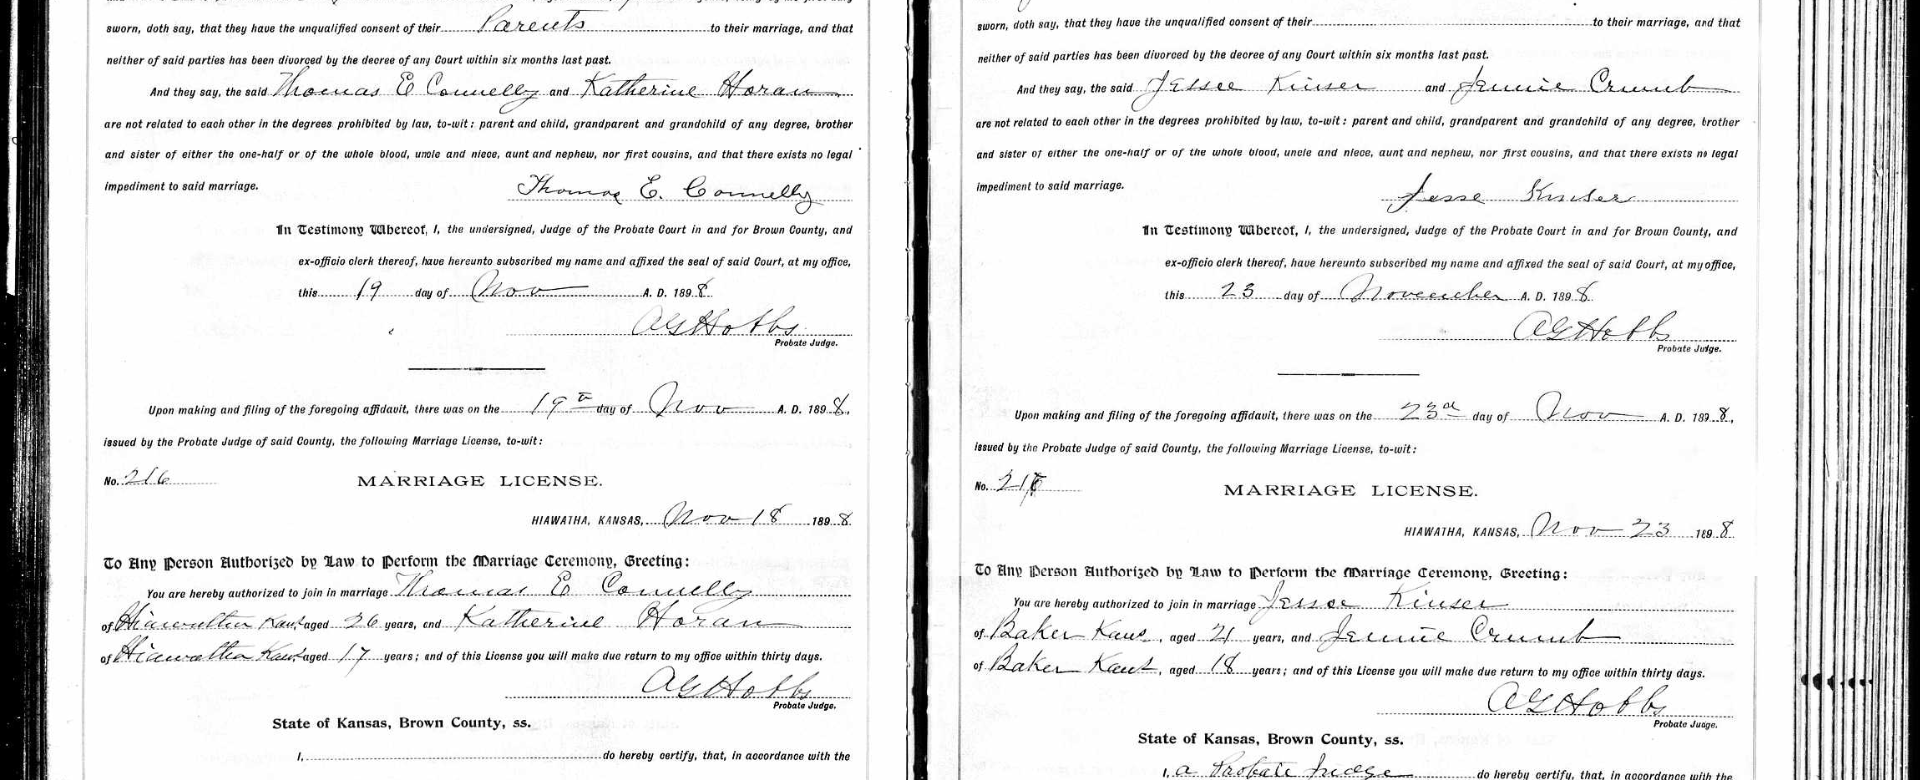 sworn, doth say, that they have the unqualified consent of their Parents to their marriage, and that
neither of said parties has been divorced by the decree of any Court within six months last past.
And they say, the said Thomas E Connelly and Katherine Horan
are not related to each other in the degrees prohibited by law, to-wit: parent and child, grandparent and grandchild of any degree, brother
and sister of either the one-half or of the whole blood, uncle and niece, aunt and nephew, nor first cousins, and that there exists no legal
impediment to said marriage.
Thomas E. Connelly
In Testimony Whereof, I, the undersigned, Judge of the Probate Court in and for Brown County, and
ex-officio clerk thereof, have hereunto subscribed my name and affixed the seal of said Court, at my office,
this 19 day of Nov A. D. 1898
A G Hobbs
Probate Judge.
Upon making and filing of the foregoing affidavit, there was on the 19th day of Nov A. D. 1898,
issued by the Probate Judge of said County, the following Marriage License, to-wit:
No. 216
MARRIAGE LICENSE.
HIAWATHA, KANSAS, Nov 18 1898
To Any Person Authorized by Law to Perform the Marriage Ceremony, Greeting:
You are hereby authorized to join in marriage Thomas E Connelly
of Hiawatha Kans aged 26 years, and Katherine Horan
of Hiawatha Kans aged 17 years; and of this License you will make due return to my office within thirty days.
A G Hobbs
Probate Judge.
State of Kansas, Brown County, ss.
I, do hereby certify, that, in accordance with the
sworn, doth say, that they have the unqualified consent of their to their marriage, and that
neither of said parties has been divorced by the decree of any Court within six months last past.
And they say, the said Jessee Kinser and Jennie Crumb
are not related to each other in the degrees prohibited by law, to-wit: parent and child, grandparent and grandchild of any degree, brother
and sister of either the one-half or of the whole blood, uncle and niece, aunt and nephew, nor first cousins, and that there exists no legal
impediment to said marriage.
Jesse Kinser
In Testimony Whereof, I, the undersigned, Judge of the Probate Court in and for Brown County, and
ex-officio clerk thereof, have hereunto subscribed my name and affixed the seal of said Court, at my office,
this 23 day of November A. D. 1898
A G Hobbs
Probate Judge.
Upon making and filing of the foregoing affidavit, there was on the 23d day of Nov A. D. 1898,
issued by the Probate Judge of said County, the following Marriage License, to-wit:
No.
MARRIAGE LICENSE.
HIAWATHA, KANSAS, Nov 23 1898
To Any Person Authorized by Law to Perform the Marriage Ceremony, Greeting:
You are hereby authorized to join in marriage Jessee Kinser
of Baker Kans, aged 21 years, and Jennie Crumb
of Baker Kans, aged 18 years; and of this License you will make due return to my office within thirty days.
A G Hobbs
Probate Judge.
State of Kansas, Brown County, ss.
I, a Probate Judge do hereby certify, that, in accordance with the